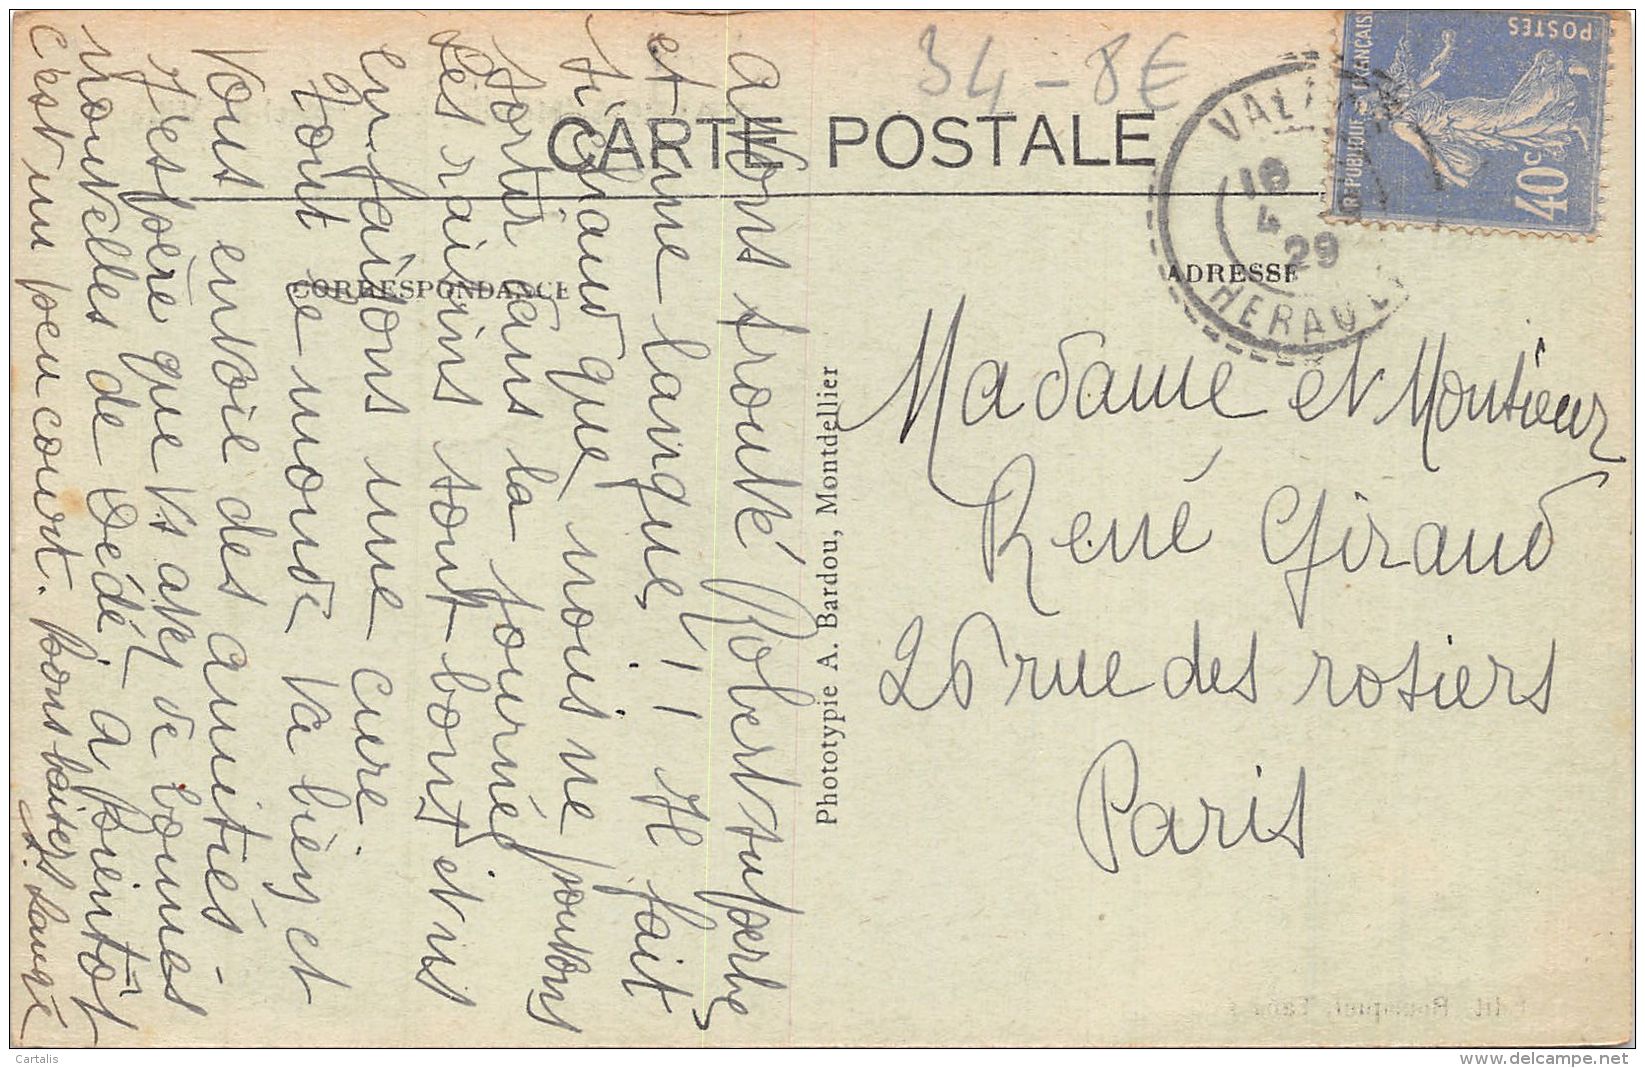 34-8€
CARTE POSTALE
CORRESPONDANCE
ADRESSE
POSTES
RÉPUBLIQUE FRANÇAISE
40c
VAL
4
29
HERAULT
avons trouvé Robert superbe
et une langue !!! Il fait
si chaud que nous ne pouvons
sortir dans la journée
Les raisins sont bons et ns
en faisons une cure
Tout le monde va bien et
vous envoie des amitiés
J'espère que vs avez de bonnes
nouvelles de Dédé à bientôt
c'est un peu court. bons baisers
Phototypie A. Bardou, Montpellier
Madame et Monsieur
René Giraud
26 rue des rosiers
Paris
Cartalis
www.delcampe.net